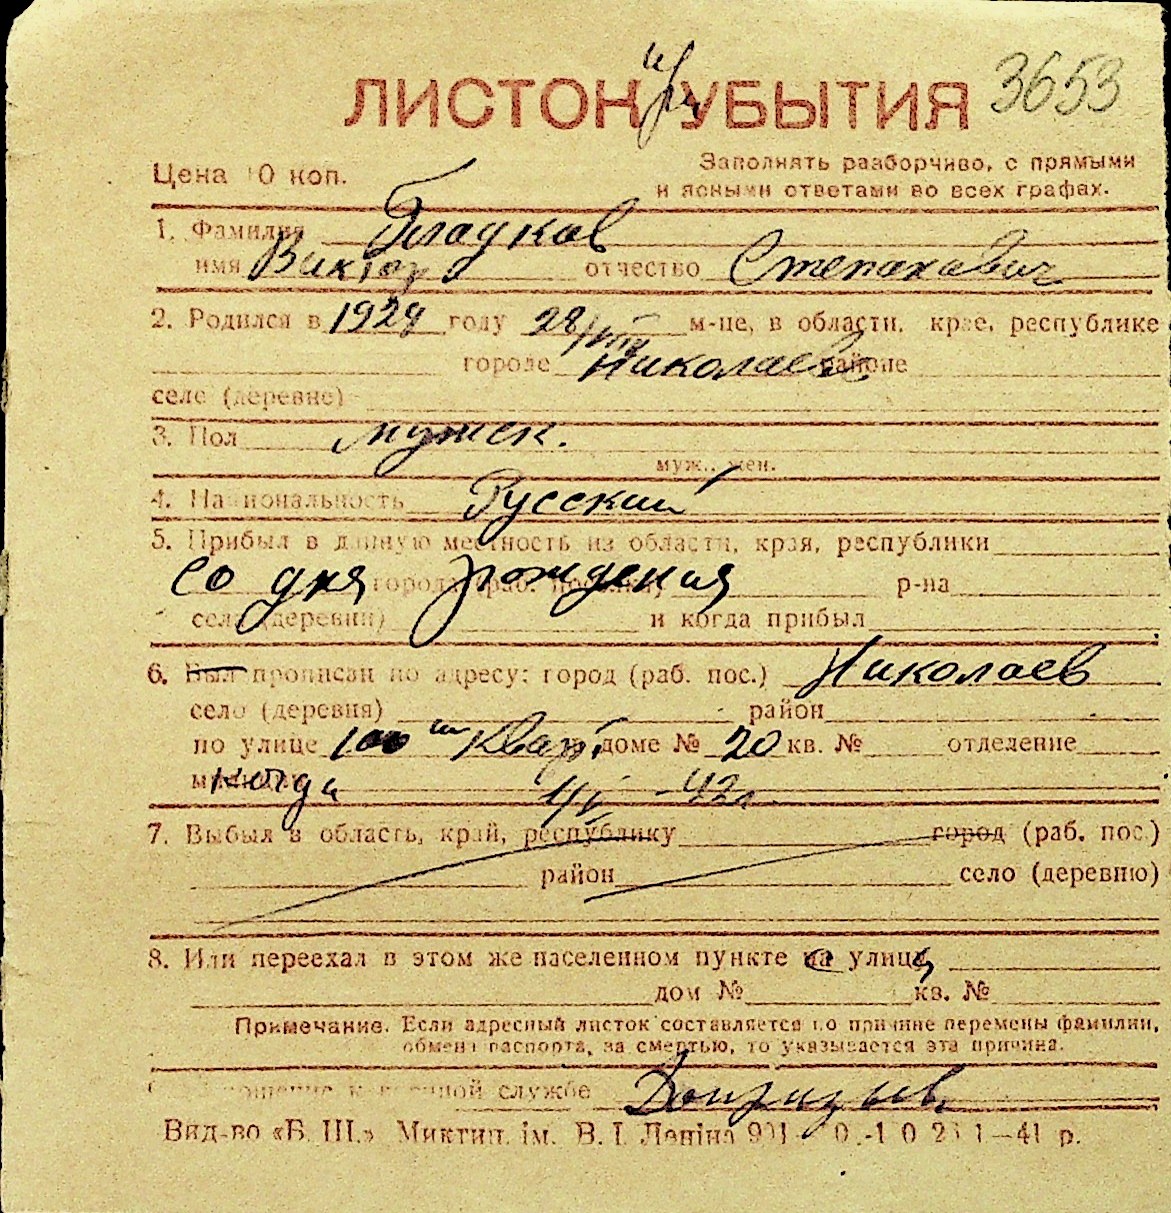 ЛИСТОК при УБЫТИЯ 3653
Цена 10 коп.
Заполнять разборчиво, с прямыми
и ясными ответами во всех графах.
1. Фамилия Гладков
имя Виктор отчество Степанович
2. Родился в 1929 году 28/VIII м-це, в области, крае, республике
городе Николаеве районе
селе (деревне)
3. Пол мужск.
муж., жен.
4. Национальность Русский
5. Прибыл в данную местность из области, края, республики
со дня рождения города (раб. поселка) р-на
села (деревни) и когда прибыл
6. Был прописан по адресу: город (раб. пос.) Николаев
село (деревня) район
по улице 100 ш Кварт доме № 20 кв. № отделение
милиции Когда 4/V-42г.
7. Выбыл в область, край, республику город (раб. пос.)
район село (деревню)
8. Или переехал в этом же населенном пункте на улицу
дом № кв. №
Примечание. Если адресный листок составляется по причине перемены фамилии,
обмена паспорта, за смертью, то указывается эта причина.
Отношение к военной службе Допризыв.
Вид-во «Б. Ш.» Миктип. ім. В. І. Леніна 1—41 р.